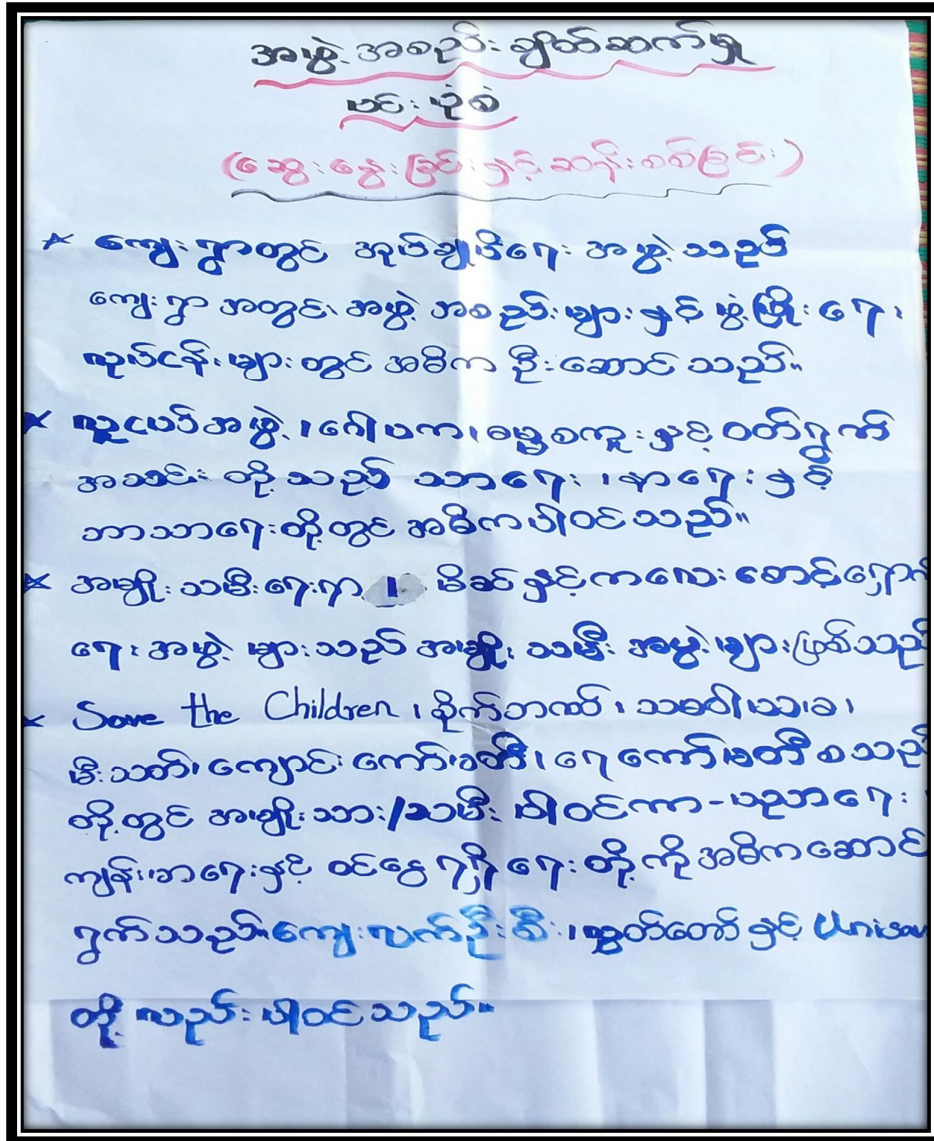 အဖွဲ့အစည်းချိတ်ဆက်မှု
ပင်းပုံစံ
(ဆွေးနွေးခြင်းနှင့်ဆန်းစစ်ခြင်း)
* ကျေးရွာတွင် အုပ်ချုပ်ရေး အဖွဲ့သည်
ကျေးရွာ အတွင်း အဖွဲ့ အစည်းများ နှင့် ဖွံ့ဖြိုးရေး
လုပ်ငန်းများ တွင် အဓိက ဦးဆောင် သည်။
* လူငယ်အဖွဲ့၊ ဂေါပက၊ ဓမ္မစကူးနှင့် ဝတ်ရွက်
အသင်း တို့သည် သာရေး၊ နာရေးနှင့်
ဘာသာရေးတို့တွင် အဓိကပါဝင်သည်။
* အမျိုးသမီးရေးရာ ၊ မိခင်နှင့်ကလေး စောင့်ရှောက်
ရေး အဖွဲ့ များသည် အမျိုးသမီး အဖွဲ့များဖြစ်သည်
* Save the Children ၊ စိုက်ဘဏ်၊ သမဝါယမ၊
မီးသတ်၊ ကျောင်းကော်မတီ၊ ရေကော်မတီ စသည်
တို့တွင် အမျိုးသား/သမီး ပါဝင်ကာ - ပညာရေး
ကျန်းမာရေးနှင့် ဝင်ငွေ ရရှိရေး တို့ကို အဓိကဆောင်
ရွက်သည်။ ကျေးလက်ဦးစီး၊ လွှတ်တော်နှင့်
တို့ လည်းပါဝင်သည်။